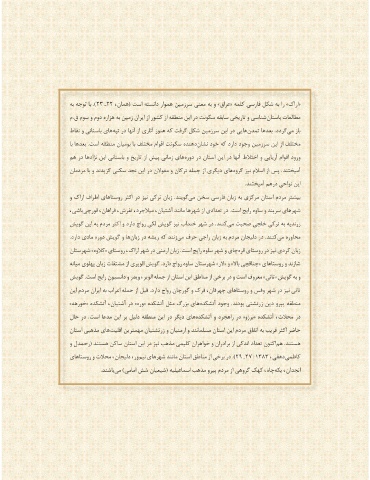 «راک» را به شکل فارسی کلمه «عراق» و به معنی سرزمین هموار دانسته است (همان، ۲۲ـ۲۳). با توجه به
مطالعات باستان شناسی و تاریخی سابقه سکونت در این منطقه از کشور از ایران زمین به هزاره دوم و سوم ق.م
باز می‌گردد. بعدها تمدن‌هایی در این سرزمین شکل گرفت که هنوز آثاری از آنها در تپه‌های باستانی و نقاط
مختلف از این سرزمین وجود دارد که خود نشان‌دهنده سکونت اقوام مختلف با بومیان منطقه است. بعدها با
ورود اقوام آریایی و اختلاط آنها در این استان در دوره‌های زمانی پیش از تاریخ و باستانی این نژادها در هم
آمیختند. پس از اسلام نیز گروه‌های دیگری از جمله ترکان و مغولان در این نجد سکنی گزیدند و با مردمان
این نواحی درهم آمیختند.
بیشتر مردم استان مرکزی به زبان فارسی سخن می‌گویند. زبان ترکی نیز در اکثر روستاهای اطراف اراک و
شهرهای سربند و ساوه رایج است. در تعدادی از شهرها مانند آشتیان، میلاجرد، تفرش، فراهان، قورچی باشی،
زرندیه به ترکی خلجی صحبت می‌کنند. در شهر خنداب نیز گویش لکی رواج دارد و اکثر مردم به این گویش
محاوره می‌کنند. در دلیجان مردم به زبان راجی حرف می‌زنند که ریشه در زبان‌ها و گویش دوره مادی دارد.
زبان کردی نیز در روستای قره‌چای و شهر ساوه رایج است. زبان ارمنی در شهر اراک، روستای «کلاوه» شهرستان
شازند و روستاهای «چناقچی بالا» و «لار» شهرستان ساوه رواج دارد. گویش الویری از مشتقات زبان پهلوی میانه
و به گویش «تاتی» معروف است و در برخی از مناطق این استان از جمله الویر، ویدر و وفس رایج است. گویش
تاتی نیز در شهر وفس و روستاهای چهرقان، فرک و گورچان رواج دارد. قبل از حمله اعراب به ایران مردم این
منطقه پیرو دین زرتشتی بودند. وجود آتشکده‌های بزرگ مثل آتشکده «وره» در آشتیان، آتشکده «خورهه»
در محلات، آتشکده «برزو» در راهجرد و آتشکده‌های دیگر در این منطقه دلیل بر این مدعا است. در حال
حاضر اکثر قریب به اتفاق مردم این استان مسلمانند و ارمنیان و زرتشتیان مهمترین اقلیت‌های مذهبی استان
هستند. هم‌اکنون تعداد اندکی از برادران و خواهران کلیمی مذهب نیز در این استان ساکن هستند (رحمدل و
کاظمی‌دهقی، ۱۳۸۲: ۲۷، ۲۹). در برخی از مناطق استان مانند شهرهای نیمور، دلیجان، محلات و روستاهای
انجدان، یکه‌چاه، کهک گروهی از مردم پیرو مذهب اسماعیلیه (شیعیان شش امامی) می‌باشند.